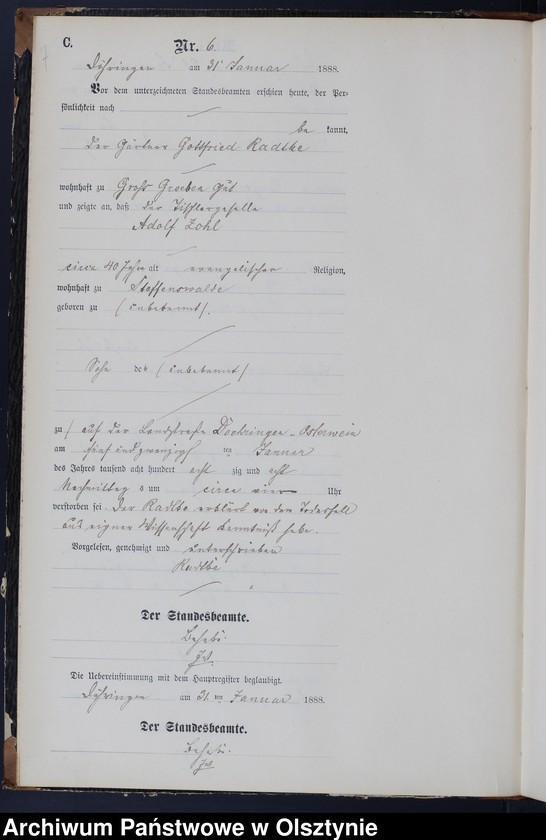 C.
Nr. 6.
Döhringen am 31 Januar 1888.
Vor dem unterzeichneten Standesbeamten erschien heute, der Per-
sönlichkeit nach
be kannt,
der Gärtner Gottfried Radtke
wohnhaft zu Groß Groeben Gut
und zeigte an, daß der Tischlergeselle
Adolf Zohl
circa 40 Jahre alt evangelischer Religion,
wohnhaft zu Steffenswalde
geboren zu (unbekannt).
Sohn des (unbekannt)
zu auf der Landstraße Doehringen - Osterwein
am fünf und zwanzigsten Januar
des Jahres tausend acht hundert acht zig und acht
Nachmittags um circa vier Uhr
verstorben sei. Der Radtke erklärt von dem Todesfall
aus eigner Wissenschaft Kenntniß habe.
Vorgelesen, genehmigt und unterschrieben
Radtke
Der Standesbeamte.
Die Uebereinstimmung mit dem Hauptregister beglaubigt.
Döhringen am 31. ten Januar 1888.
Der Standesbeamte.
Archiwum Państwowe w Olsztynie